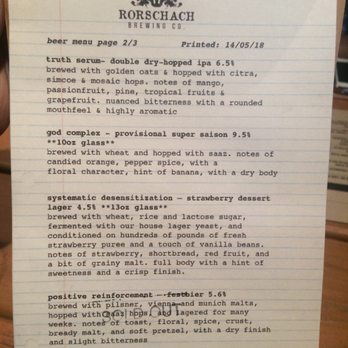 RORSCHACH
BREWING CO.
beer menu page 2/3 Printed: 14/05/18
truth serum- double dry-hopped ipa 6.5%
brewed with golden oats & hopped with citra,
simcoe & mosaic hops. notes of mango,
passionfruit, pine, tropical fruits &
grapefruit. nuanced bitterness with a rounded
mouthfeel & highly aromatic
god complex - provisional super saison 9.5%
**10oz glass**
brewed with wheat and hopped with saaz. notes of
candied orange, pepper spice, with a
floral character, hint of banana, with a dry body
systematic desensitization - strawberry dessert
lager 4.5% **13oz glass**
brewed with wheat, rice and lactose sugar,
fermented with our house lager yeast, and
conditioned on hundreds of pounds of fresh
strawberry puree and a touch of vanilla beans.
notes of strawberry, shortbread, red fruit, and
a bit of grainy malt. full body with a hint of
sweetness and a crisp finish.
positive reinforcement - festbier 5.6%
brewed with pilsner, vienna and munich malts,
hopped with hops, and lagered for many
SOLD OUT
weeks. notes of toast, floral, spice, crust,
bready malt, and soft pretzel, with a dry finish
and slight bitterness